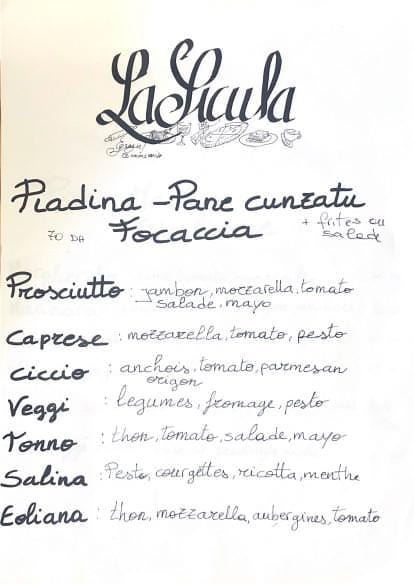 La Sicula
Piadina - Pane cunzatu
Focaccia
70 DH
+ frites ou
salade
Prosciutto : jambon, mozzarella, tomato
salade, mayo
Caprese : mozzarella, tomato, pesto
Ciccio : anchois, tomato, parmesan
origan
Veggi : legumes, fromage, pesto
Tonno : thon, tomato, salade, mayo
Salina : Pesto, courgettes, ricotta, menthe
Eoliana : thon, mozzarella, aubergines, tomato